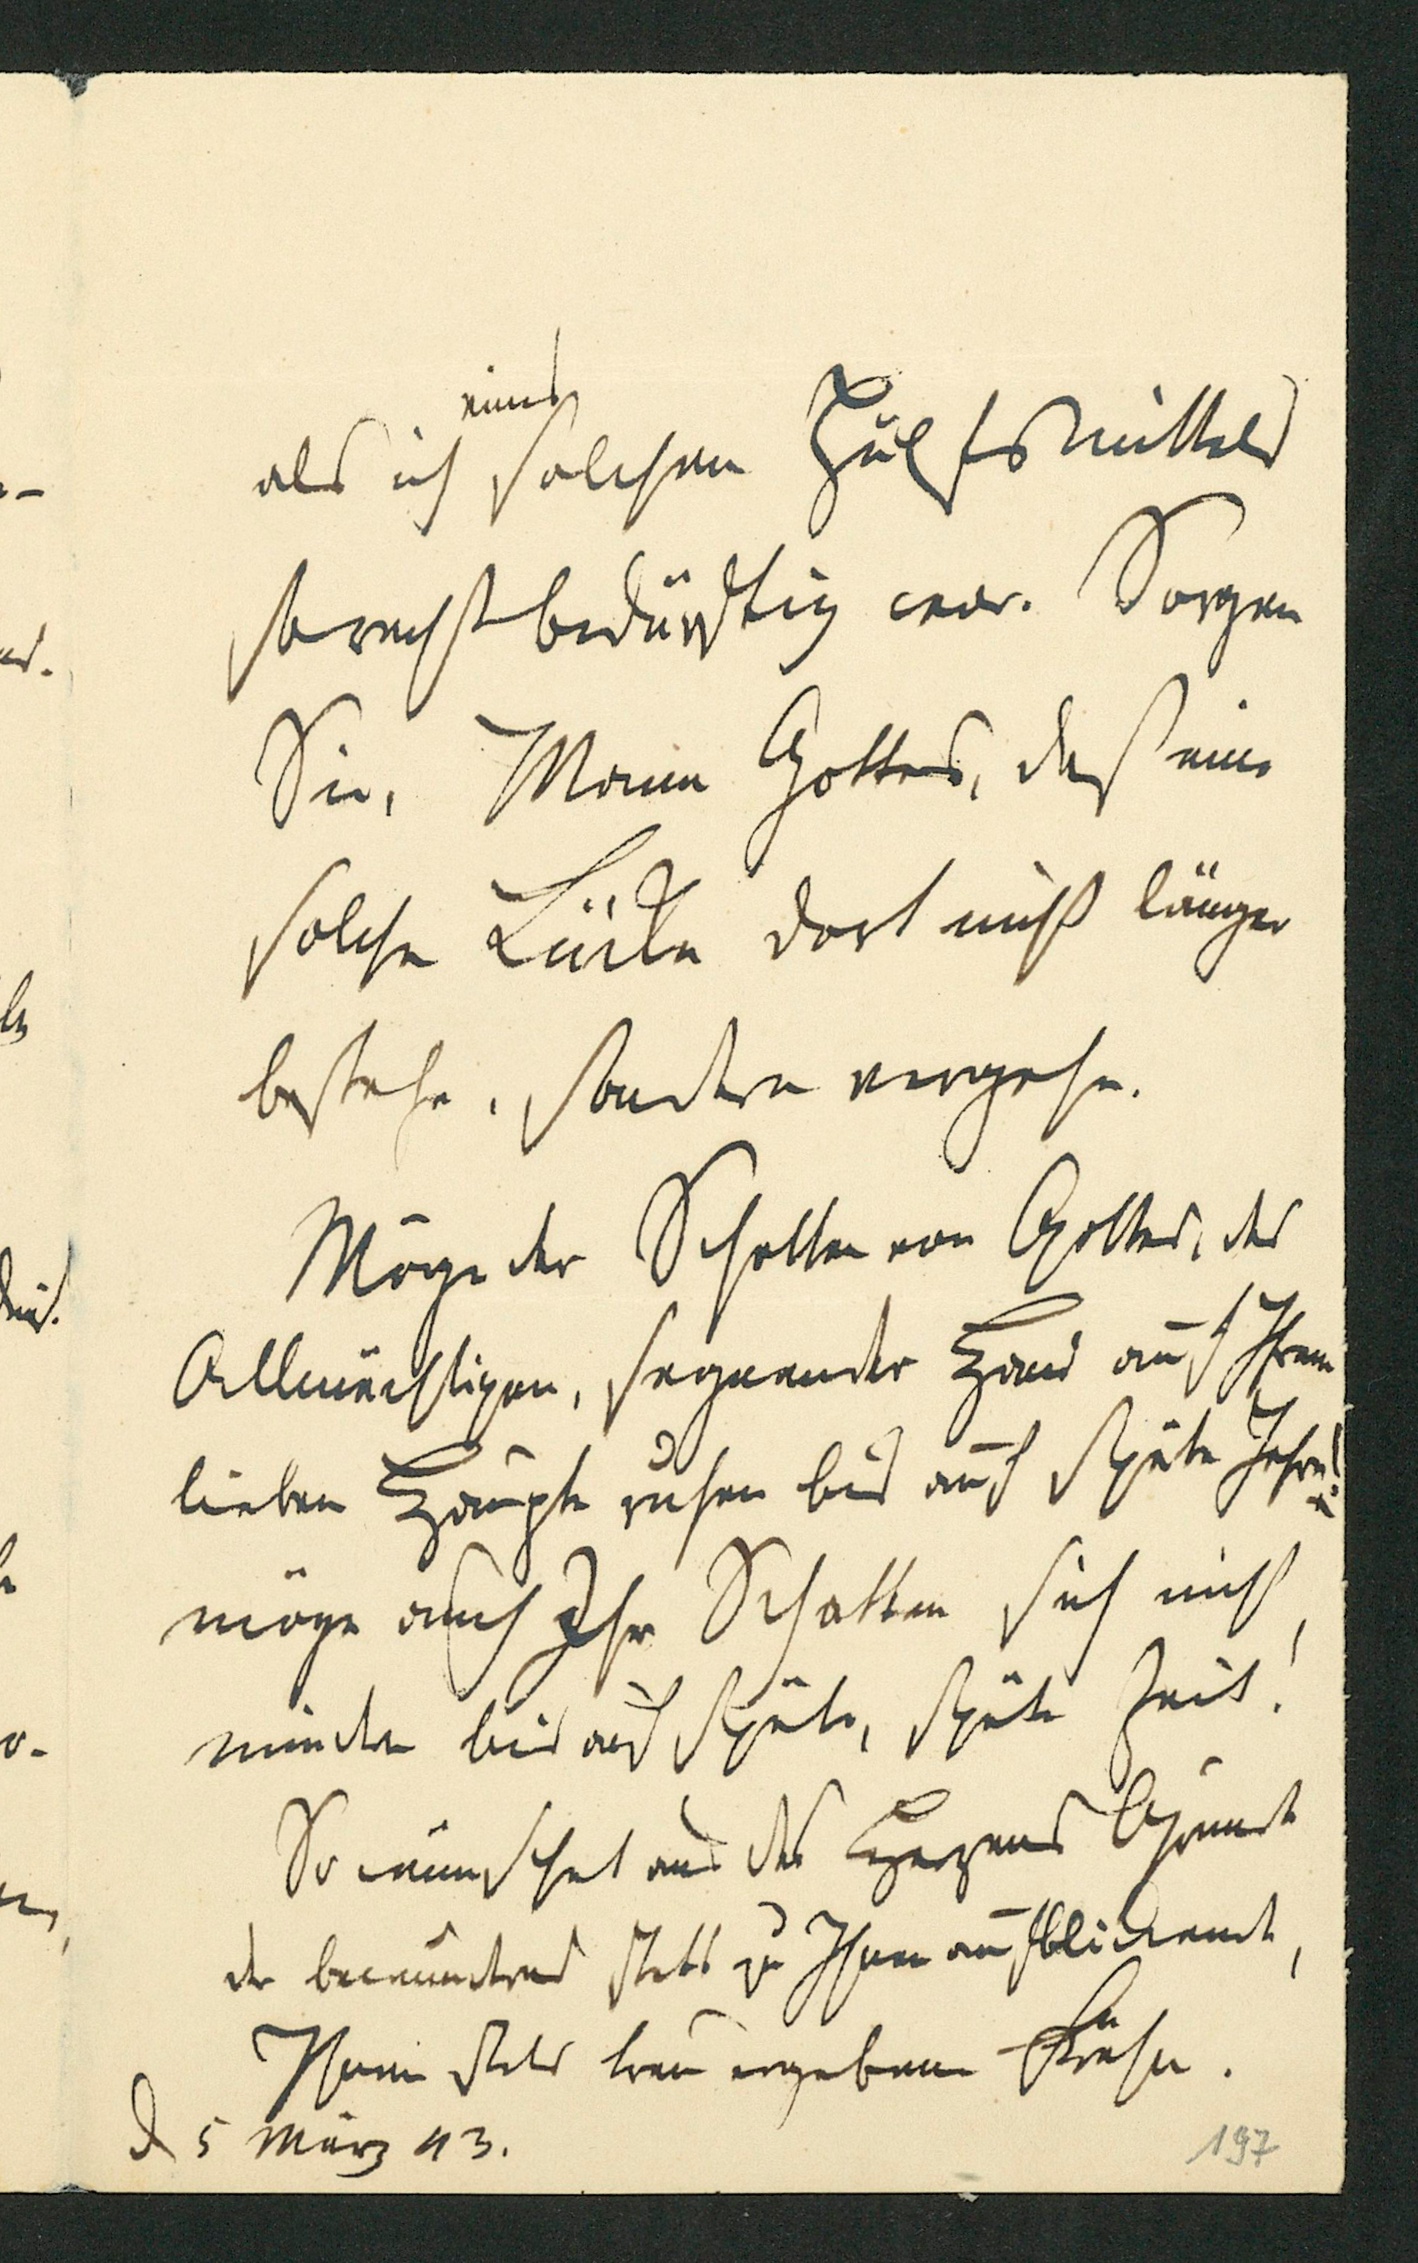 eines
als ich solchen Hülfsmittels
so recht bedürftig war. Sorgen
Sie, Mann Gottes, daß eine
solche Lücke dort nicht länger
bestehe, sondern vergehe.
Möge der Schatten von Gottes, des
Allmächtigen, segnender Hand auf Ihrem
lieben Haupte ruhen bis auf späte Jahre! u.
möge auch Ihr Schatten sich nicht
mindern bis auf späte, späte Zeit!
So wünschet aus des Herzens Grunde
der bewundernd stets zu Ihnen aufblickende,
Ihnen stets treu ergebene
d 5 März 93.
197